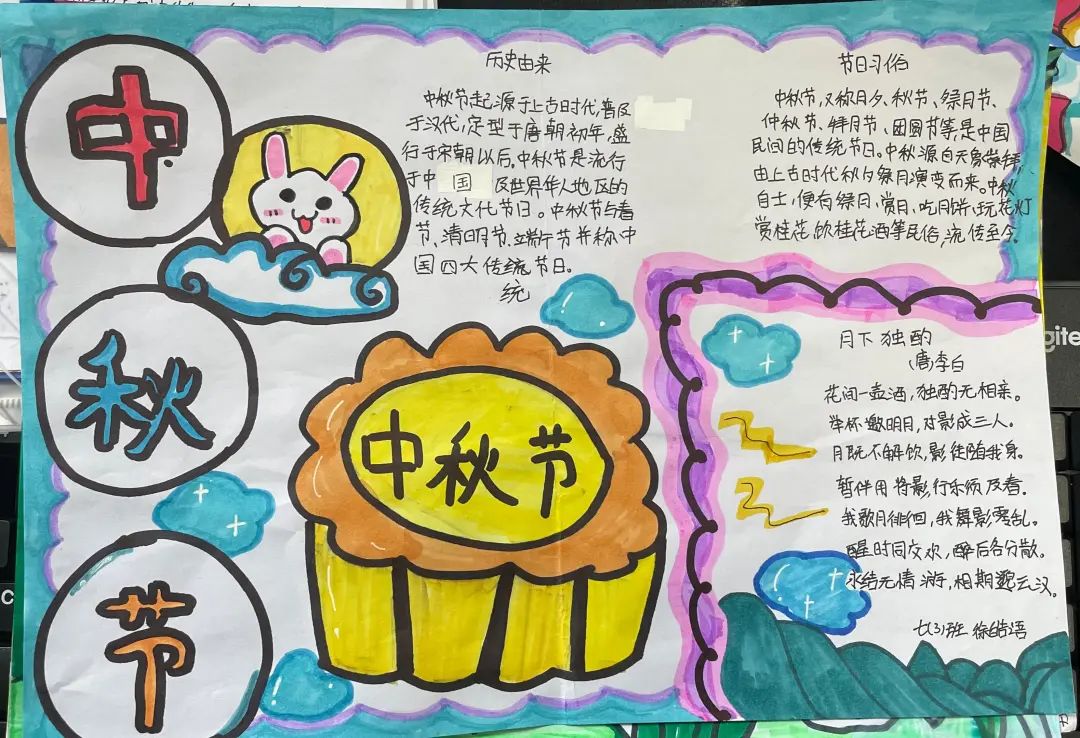 中
秋
节
历史由来
中秋节起源于上古时代,普及
于汉代,定型于唐朝初年,盛
行于宋朝以后。中秋节是流行
于中国及世界华人地区的
传统文化节日。中秋节与春
节、清明节、端午节并称中
国四大传统节日。
统
节日习俗
中秋节,又称月夕、秋节、祭月节、
仲秋节、拜月节、团圆节等,是中国
民间的传统节日。中秋源自天象崇拜
由上古时代秋夕祭月演变而来。中秋
自士,便有祭月、赏月、吃月饼、玩花灯
赏桂花、饮桂花酒等民俗,流传至今。
中秋节
月下独酌
(唐)李白
花间一壶酒,独酌无相亲。
举杯邀明月,对影成三人。
月既不解饮,影徒随我身。
暂伴月将影,行乐须及春。
我歌月徘徊,我舞影零乱。
醒时同交欢,醉后各分散。
永结无情游,相期邈云汉。
七(3)班 徐皓语
gite